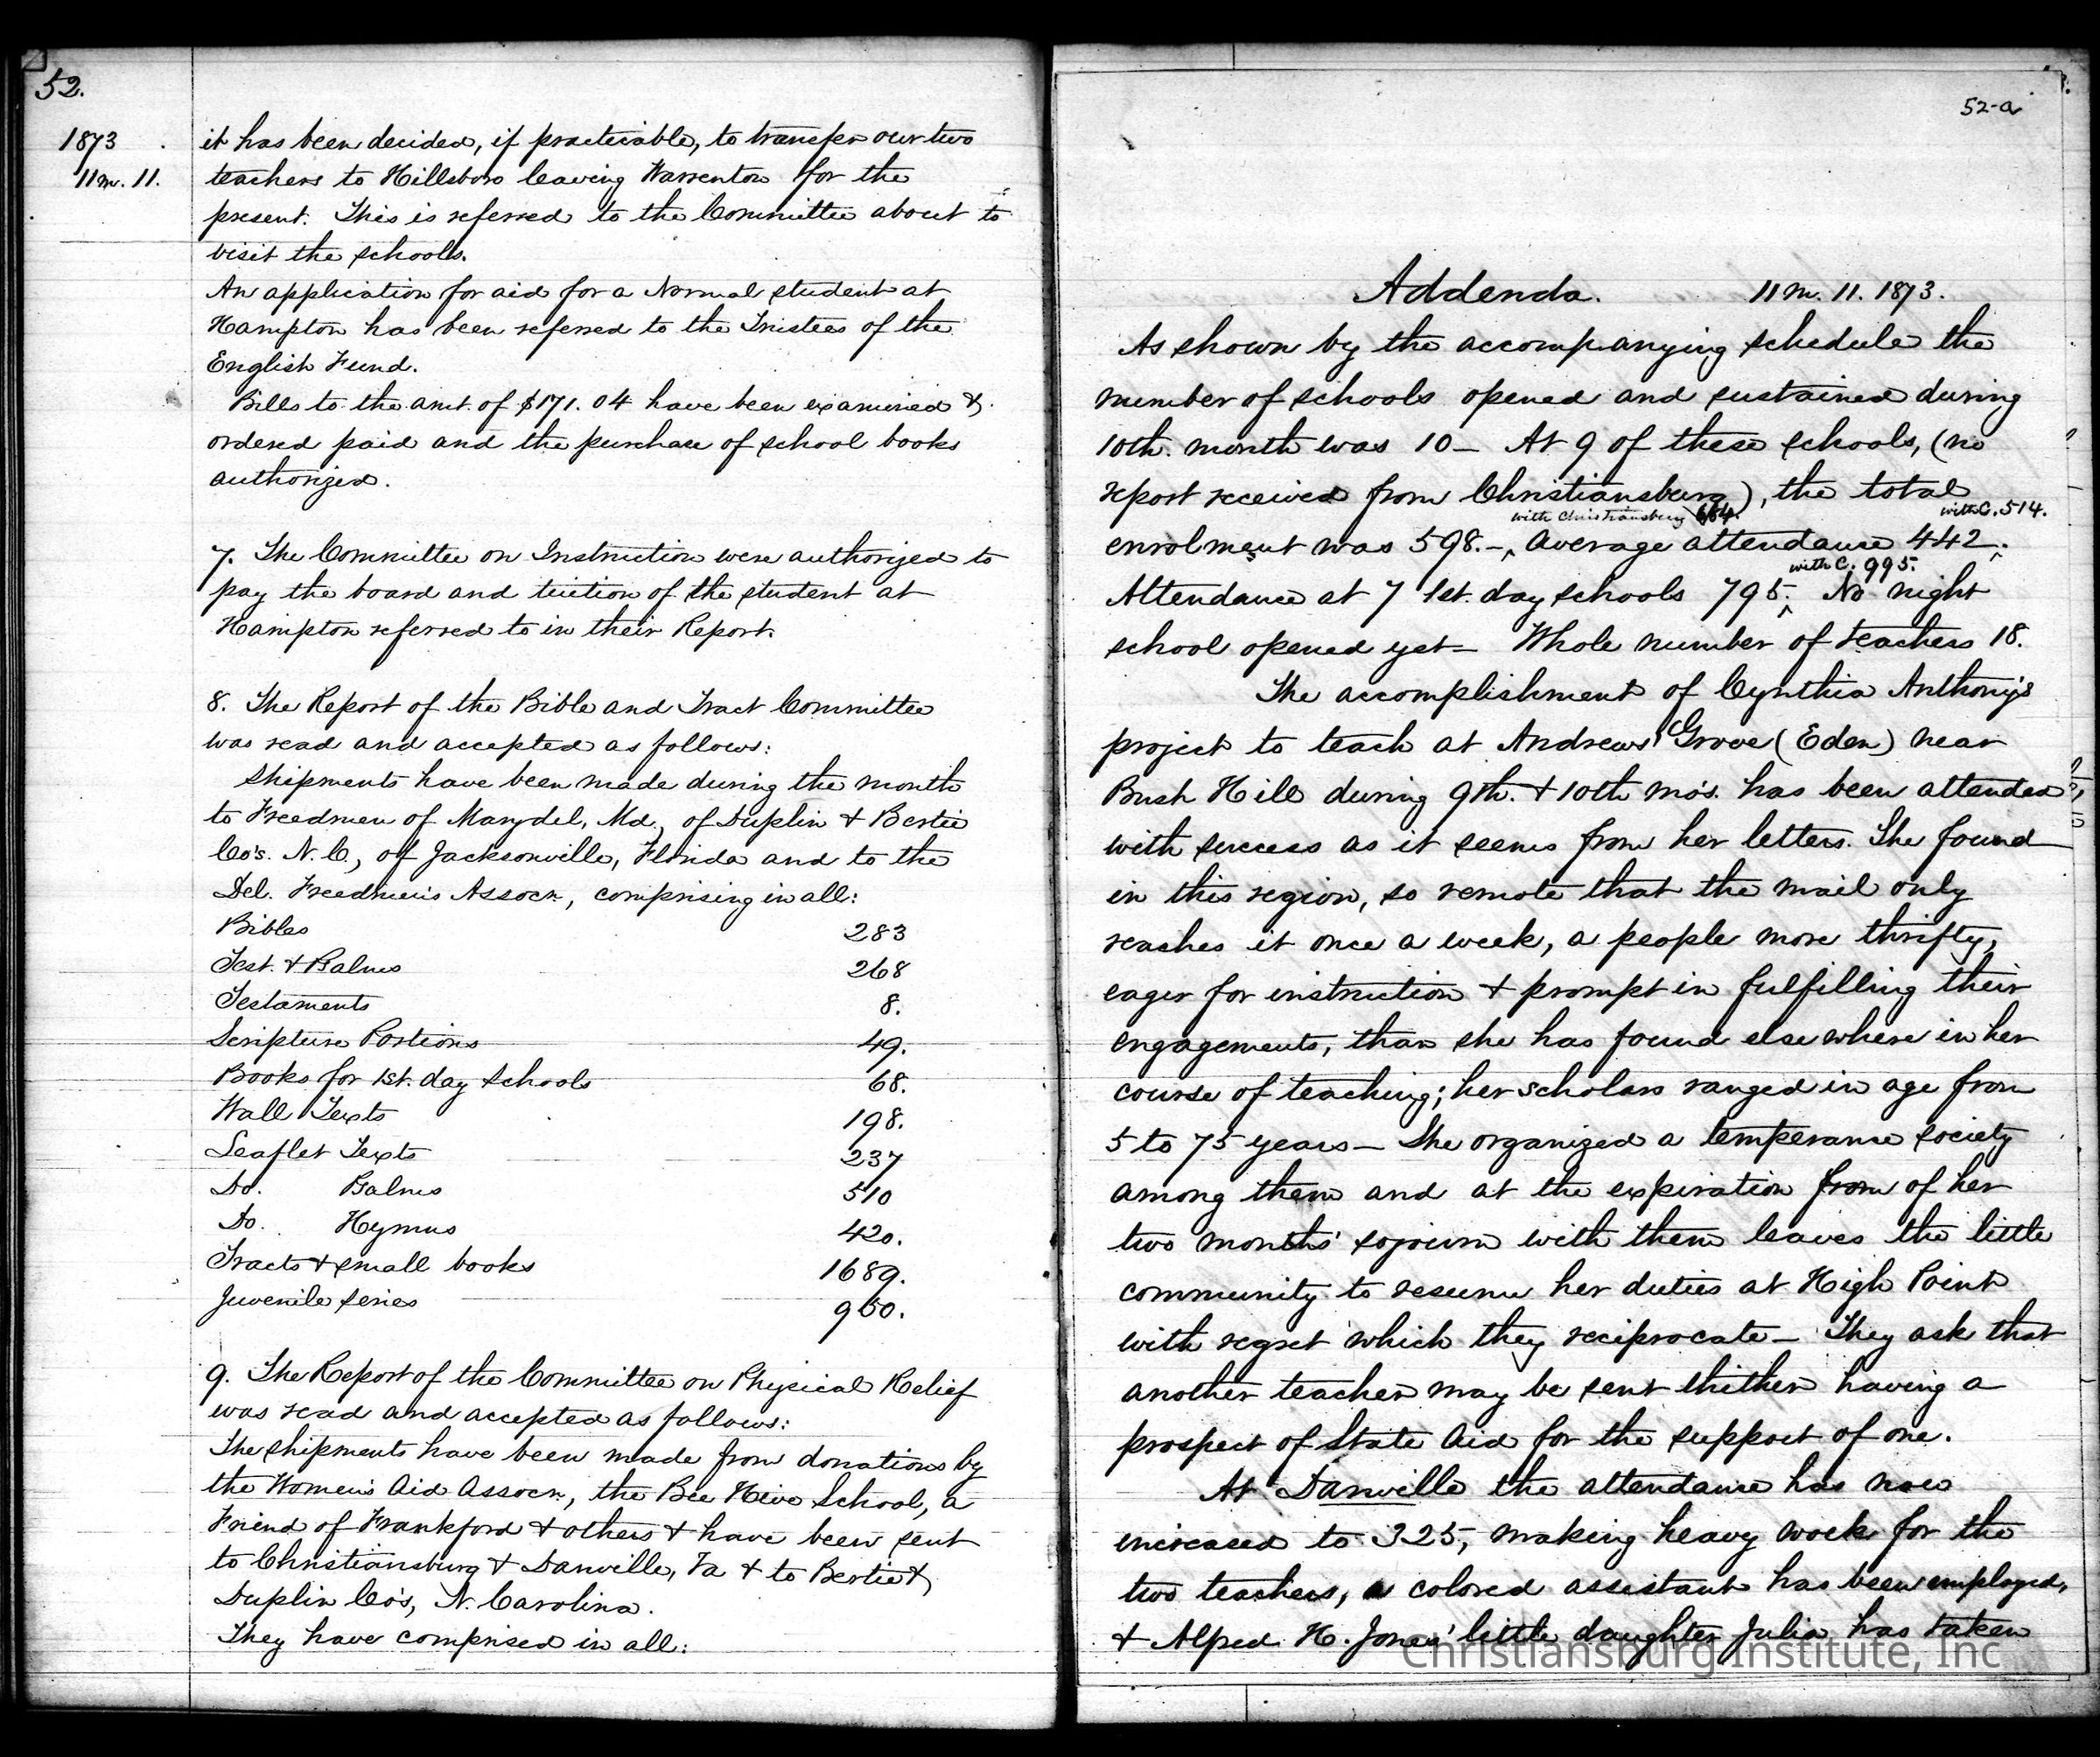 52.
1873
11 m. 11.
it has been decided, if practicable, to transfer our two
teachers to Hillsboro leaving Warrenton for the
present. This is referred to the Committee about to
visit the schools.
An application for aid for a Normal student at
Hampton has been referred to the Trustees of the
English Fund.
Bills to the amt. of $171.04 have been examined &
ordered paid and the purchase of school books
authorized.
7. The Committee on Instruction were authorized to
pay the board and tuition of the student at
Hampton referred to in their Report.
8. The Report of the Bible and Tract Committee
was read and accepted as follows:
Shipments have been made during the month
to Freedmen of Marydel, Md., of Duplin & Bertie
Co's. N.C., of Jacksonville, Florida and to the
Del. Freedmen's Assocn, comprising in all:
Bibles 283
Test. & Psalms 268
Testaments 8.
Scripture Portions 49.
Books for 1st. day schools 68.
Wall Texts 198.
Leaflet Texts 237
Do. Psalms 510
Do. Hymns 420.
Tracts & small books 1689.
Juvenile series 950.
9. The Report of the Committee on Physical Relief
was read and accepted as follows:
The shipments have been made from donations by
the Women's Aid Assocn, the Bee Hive School, a
Friend of Frankford & others & have been sent
to Christiansburg & Danville, Va & to Bertie &
Duplin Co's, N. Carolina.
They have comprised in all:
52-a
Addenda. 11 m. 11. 1873.
As shown by the accompanying schedule the
number of schools opened and sustained during
10th. month was 10 – At 9 of these schools, (no
report received from Christiansburg), the total
with Christiansburg 664. with C. 514.
enrolment was 598. – ^ Average attendance 442 ^.
with C. 995.
Attendance at 7 1st. day schools 795. ^ No night
school opened yet – Whole number of teachers 18.
The accomplishment of Cynthia Anthony's
project to teach at Andrews' Grove (Eden) near
Bush Hill during 9th. & 10th mo's. has been attended
with success as it seems from her letters. She found
in this region, so remote that the mail only
reaches it once a week, a people more thrifty,
eager for instruction & prompt in fulfilling their
engagements, than she has found elsewhere in her
course of teaching; her scholars ranged in age from
5 to 75 years – She organized a temperance society
among them and at the expiration from of her
two months' sojourn with them leaves the little
community to resume her duties at High Point
with regret which they reciprocate – They ask that
another teacher may be sent thither having a
prospect of State Aid for the support of one.
At Danville the attendance has now
increased to 325, making heavy work for the
two teachers, a colored assistant has been employed,
& Alfred H. Jones' little daughter Julia has taken
Christiansburg Institute, Inc